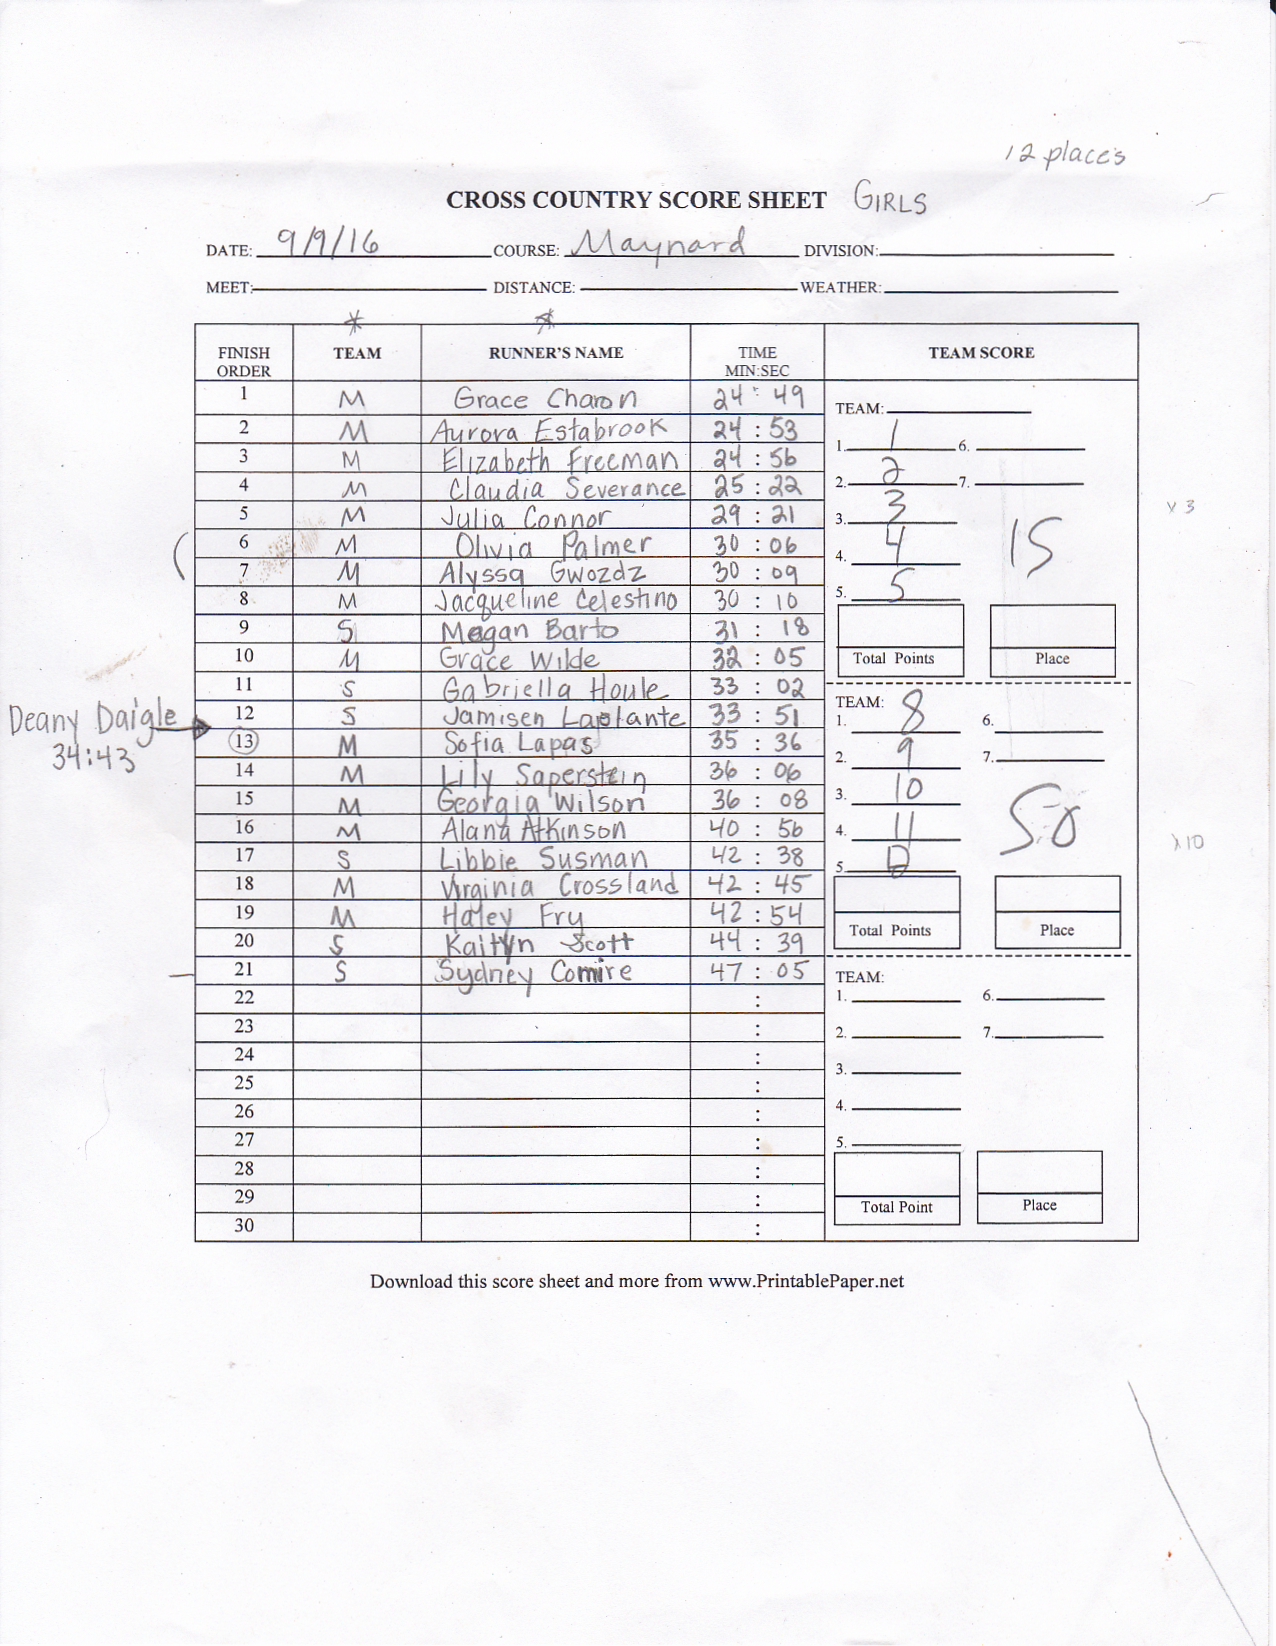 12 places
CROSS COUNTRY SCORE SHEET GIRLS
DATE: 9/9/16 COURSE: Maynard DIVISION:
MEET: DISTANCE: WEATHER:
* *
FINISH ORDER TEAM RUNNER'S NAME TIME MIN:SEC TEAM SCORE
1 M Grace Charon 24:49
2 M Aurora Estabrook 24:53
3 M Elizabeth Freeman 24:56
4 M Claudia Severance 25:22
5 M Julia Connor 29:21
6 M Olivia Palmer 30:06
7 M Alyssa Gwozdz 30:09
8 M Jacqueline Celestino 30:10
9 S Megan Barto 31:18
10 M Grace Wilde 32:05
11 S Gabriella Houle 33:02
12 S Jamisen Laplante 33:51
Deany Daigle
34:43
13 M Sofia Lapas 35:36
14 M Lily Saperstein 36:06
15 M Georgia Wilson 36:08
16 M Alana Atkinson 40:56
17 S Libbie Susman 42:38
18 M Virginia Crossland 42:45
19 M Haley Fry 42:54
20 S Kaitlyn Scott 44:39
21 S Sydney Comire 47:05
22 :
23 :
24 :
25 :
26 :
27 :
28 :
29 :
30 :
TEAM:
1. 1 6.
2. 2 7.
3. 3
4. 4
5. 5
15
Total Points Place
TEAM:
1. 8 6.
2. 9 7.
3. 10
4. 11
5. 12
50
Total Points Place
TEAM:
1. 6.
2. 7.
3.
4.
5.
Total Point Place
Download this score sheet and more from www.PrintablePaper.net